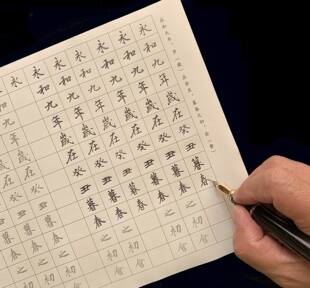 永和九年歲在癸丑暮春之初
永和九年歲在癸丑暮春之初會
永和九年歲在癸丑暮春之初會
永和九年歲在癸丑暮春之初會
永和九年歲在癸丑暮春之初會
永和九年歲在癸丑暮春之初會
和九年歲在癸丑暮春之初會
年歲在癸丑暮春之初會